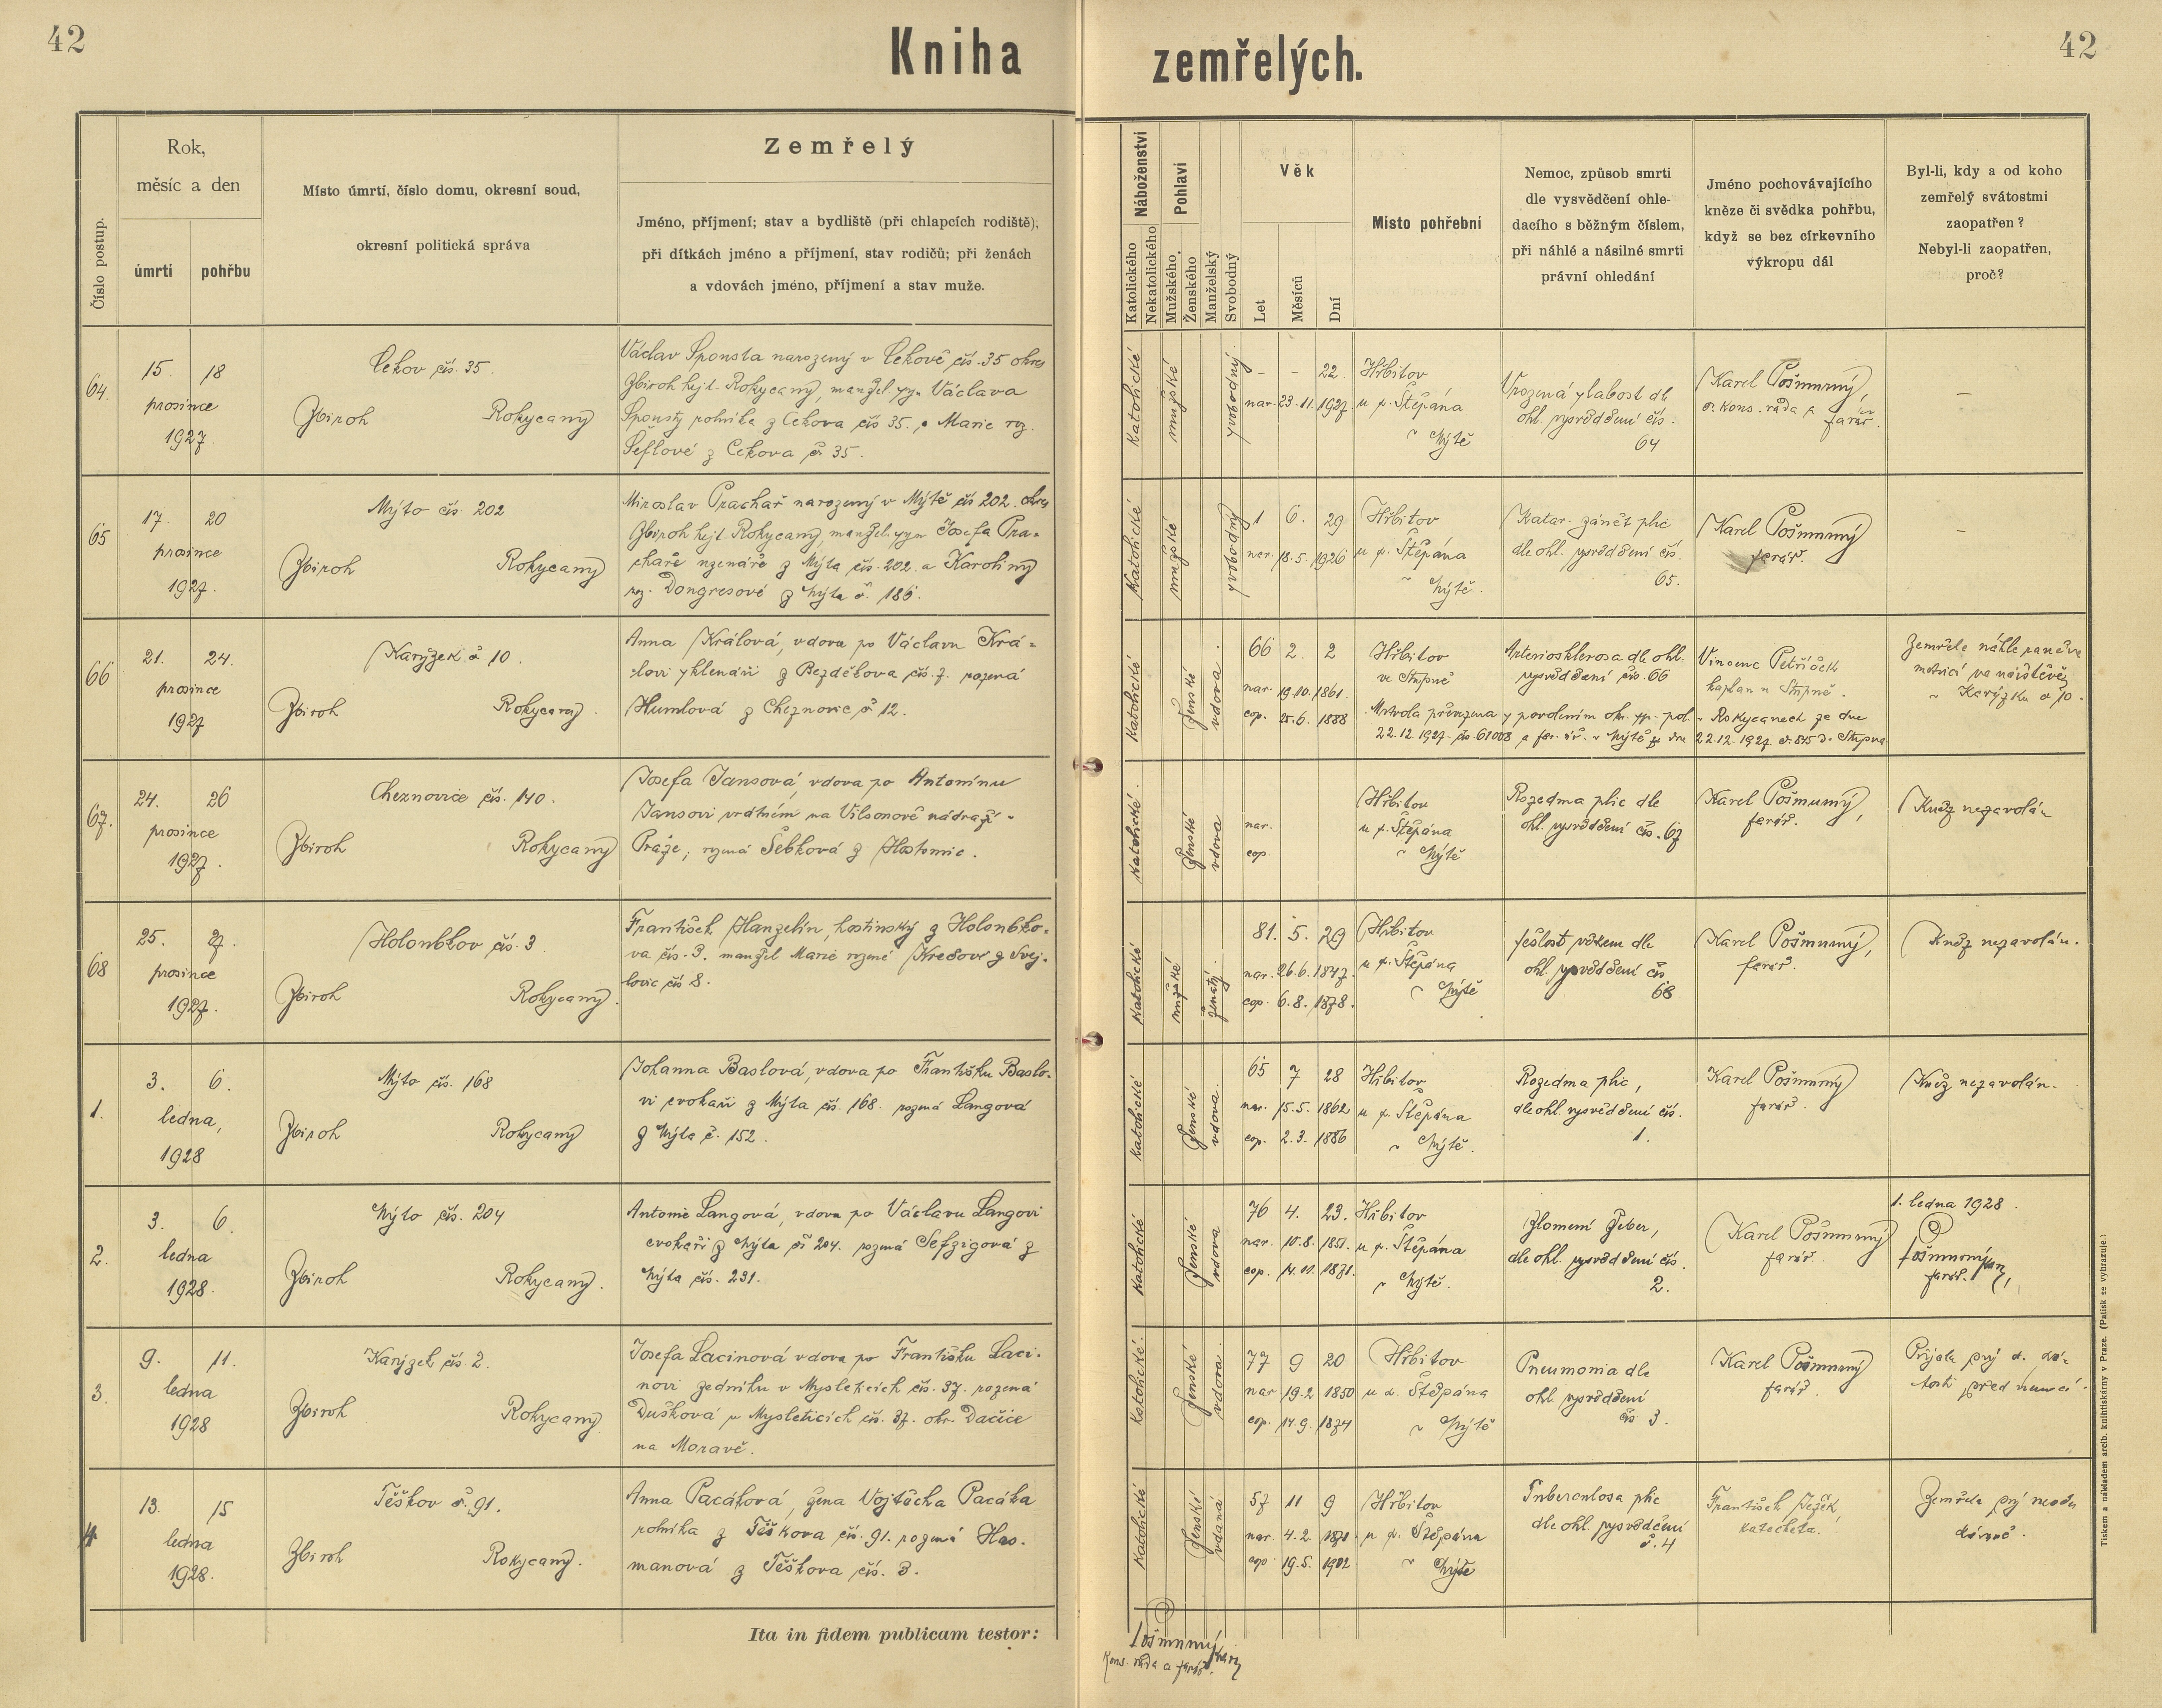 42
Kniha zemřelých.
42
Číslo postup.
Rok,
měsíc a den
úmrtí
pohřbu
Místo úmrtí, číslo domu, okresní soud,
okresní politická správa
Zemřelý
Jméno, příjmení; stav a bydliště (při chlapcích rodiště);
při dítkách jméno a příjmení, stav rodičů; při ženách
a vdovách jméno, příjmení a stav muže.
Náboženství
Katolického
Nekatolického
Pohlaví
Mužského
Ženského
Manželský
Svobodný
Věk
Let
Měsíců
Dní
Místo pohřební
Nemoc, způsob smrti
dle vysvědčení ohle-
dacího s běžným číslem,
při náhlé a násilné smrti
právní ohledání
Jméno pochovávajícího
kněze či svědka pohřbu,
když se bez církevního
výkropu dál
Byl-li, kdy a od koho
zemřelý svátostmi
zaopatřen?
Nebyl-li zaopatřen,
proč?
64.
15. 18
prosince
1927.
Cekov čís. 35.
Zbiroh Rokycany
Václav Sponsta narozený v Cekově čís. 35 okres
Zbiroh hejt. Rokycany, manžel. syn Václava
Sponsty rolníka z Cekova čís 35. a Marie roz.
Šeflové z Cekova č. 35.
Katolické
mužské
svobodný
– – 22.
nar. 23. 11. 1927.
Hřbitov
u s. Štěpána
v Mýtě
Vrozená slabost dle
ohl. vysvědčení čís.
64
Karel Pošmurný,
b. kons. rada a
farář.
–
65
17. 20
prosince
1927.
Mýto čís. 202
Zbiroh Rokycany
Miroslav Prachař narozený v Mýtě čís 202. okres
Zbiroh hejt. Rokycany, manžel. syn Josefa Pra-
chaře z Mýta čís. 202. a Karoliny
roz. Dongresové z Mýta č. 186.
Katolické
mužské
svobodný
1 6. 29
nar. 18. 5. 1926
Hřbitov
u s. Štěpána
v Mýtě.
Katar. zánět plic
dle ohl. vysvědčení čís.
65.
Karel Pošmurný
farář.
–
66
21. 24.
prosince
1927
Karýzek č 10.
Zbiroh Rokycany.
Anna Králová, vdova po Václavu Krá-
lovi sklenáři z Bezděkova čís. 7. rozená
Humlová z Cheznovic č 12.
Katolické
ženské
vdova.
66 2. 2
nar. 19. 10. 1861.
cop. 25. 6. 1888
Hřbitov
ve Strpně
Arteriosklerosa dle ohl.
vysvědčení čís. 66
Vincenc Petříček
kaplan v Strpně.
Zemřela náhle raněna
mrtvicí na návštěvě
v Karýzku č 10.
Mrtvola převezena s povolením okr. sp. pol. v Rokycanech ze dne
22.12.1927. čís. 61008 a far. úř. v Mýtě ze dne 22.12.1927 č. 845 do Strpna
67.
24. 26
prosince
1927.
Cheznovice čís. 140.
Zbiroh Rokycany
Josefa Jansová, vdova po Antonínu
Jansovi vrátném na Vilsonově nádraží v
Praze, rozená Šebková z Hostomic.
Katolické.
ženské
vdova
nar.
cop.
Hřbitov
u s. Štěpána
v Mýtě.
Rozedma plic dle
ohl. vysvědčení čís. 67
Karel Pošmurný,
farář.
Kněz nezavolán
68
25. 27.
prosince
1927.
Holoubkov čís. 3
Zbiroh Rokycany.
František Hanzelín, hostinský z Holoubko-
va čís. 3. manžel Marie rozené z Svej-
kovic čís 8.
Katolické
mužské
ženatý.
81. 5. 29
nar. 26. 6. 1847.
cop. 6. 8. 1878.
Hřbitov
u s. Štěpána
v Mýtě
Sešlost věkem dle
ohl. vysvědčení čís.
68
Karel Pošmurný,
farář.
Kněz nezavolán.
1.
3. 6.
ledna,
1928
Mýto čís. 168
Zbiroh Rokycany
Johanna Baslová, vdova po Františku Baslo-
vi cvokaři z Mýta čís. 168. rozená Langová
z Mýta č. 152.
Katolické
ženské
vdova.
65 7 28
nar. 15. 5. 1862
cop. 2. 3. 1886
Hřbitov
u s. Štěpána
v Mýtě.
Rozedma plic,
dle ohl. vysvědčení čís.
1.
Karel Pošmurný
farář.
Kněz nezavolán.
2.
3. 6.
ledna
1928.
Mýto čís. 204
Zbiroh Rokycany.
Antonie Langová, vdova po Václavu Langovi
cvokaři z Mýta čí 204. rozená Sefzigová z
Mýta čís. 231.
Katolické
ženské
vdova
76 4. 23.
nar. 10. 8. 1851.
cop. 14. 11. 1871.
Hřbitov
u s. Štěpána
v Mýtě.
Zlomení žeber,
dle ohl. vysvědčení čís.
2.
Karel Pošmurný
farář.
1. ledna 1928.
Pošmurný
farář.
3.
9. 11.
ledna
1928
Karýzek čís 2.
Zbiroh Rokycany
Josefa Lacinová vdova po Františku Laci-
novi zedníku v Mysleticích čís. 37. rozená
Dušková v Mysleticích čís. 37. okr. Dačice
na Moravě.
Katolické.
ženské
vdova.
77 9 20
nar 19. 2 1850
cop. 14. 9. 1874
Hřbitov
u s. Štěpána
v Mýtě
Pneumonia dle
ohl. vysvědčení
čís 3.
Karel Pošmurný
farář.
Přijala prý s. svá-
tosti před nemocí.
4
13. 15
ledna
1928.
Těškov č. 91.
Zbiroh Rokycany.
Anna Pacáková, žena Vojtěcha Pacáka
rolníka z Těškova čís. 91. rozená Has-
manová z Těškova čís. 3.
Katolické
ženské
vdaná
57 11 9
nar. 4. 2. 1870.
cop 19. 5. 1902
Hřbitov
u s. Štěpána
v Mýtě
Tuberculosa plic
dle ohl. vysvědčení
č. 4
František Ježek
katecheta.
Zemřela prý
Ita in fidem publicam testor:
Pošmurný
kons. rada a farář.
Tiskem a nákladem arcib. knihtiskárny v Praze. (Patisk se vyhrazuje.)